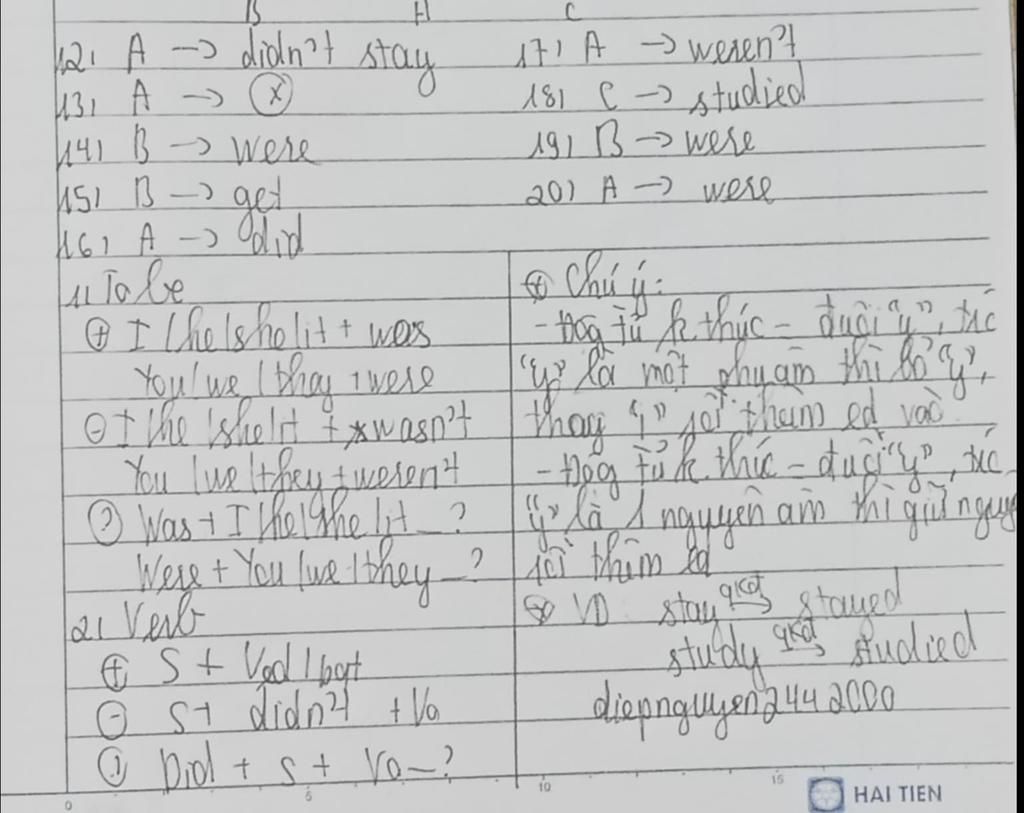 B A C
12) A → didn't stay
13) A → ⓧ
14) B → were
15) B → get
16) A → did
17) A → weren't
18) C → studied
19) B → were
20) A → were
1) To be
⊕ I / he / she / it + was
You / we / they + were
⊖ I / he / she / it + wasn't
You / we / they + weren't
? Was + I / he / she / it _?
Were + You / we / they _?
2) Verb
⊕ S + Ved / bqt
⊖ S + didn't + Vo
? Did + S + Vo _?
⊛ Chú ý:
- Đọg từ k thúc - đuôi "y", trc
"y" là một phụ âm thì bỏ "y",
thay "i" rồi thêm ed vào
- Đọg từ k thúc - đuôi "y", trc
"y" là 1 nguyên âm thì giữ nguy
rồi thêm ed
⊛ VD: stay qkđ→ stayed
study qkđ→ studied
diepnguyen2442000
0 5 10 15
HAI TIEN